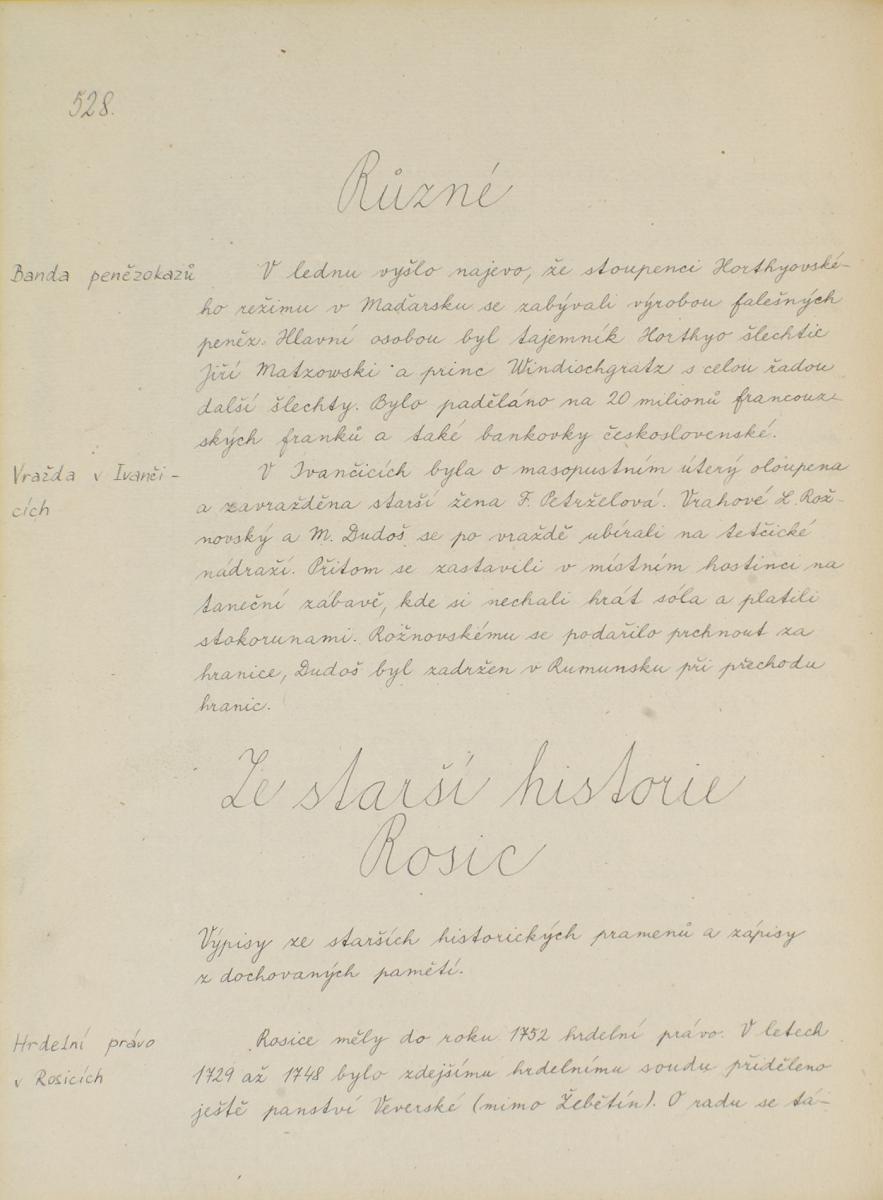 528.
Různé
Banda penězokazů
V lednu vyšlo najevo, že stoupenci Horthyovské-
ho režimu v Maďarsku se zabývali výrobou falešných
peněz. Hlavní osobou byl tajemník Horthyo šlechtic
Jiří Matzowski a princ Windischgratz s celou řadou
další šlechty. Bylo paděláno na 20 milionů francouz-
ských franků a také bankovky československé.
Vražda v Ivanči-
cích
V Ivančicích byla o masopustním úterý oloupena
a zavražděna starší žena F. Petrželová. Vrahové L. Rož-
novský a M. Dudoš se po vraždě ubírali na tetčické
nádraží. Přitom se zastavili v místním hostinci na
taneční zábavě, kde si nechali hrát sóla a platili
stokorunami. Rožnovskému se podařilo prchnout za
hranice, Dudoš byl zadržen v Rumunsku při přechodu
hranic.
Ze starší historie
Rosic
Výpisy ze starších historických pramenů a zápisy
z dochovaných pamětí.
Hrdelní právo
v Rosicích
Rosice měly do roku 1752 hrdelní právo. V letech
1729 až 1748 bylo zdejšímu hrdelnímu soudu přiděleno
ještě panství Veverské (mimo Žebětín). O radu se tá-